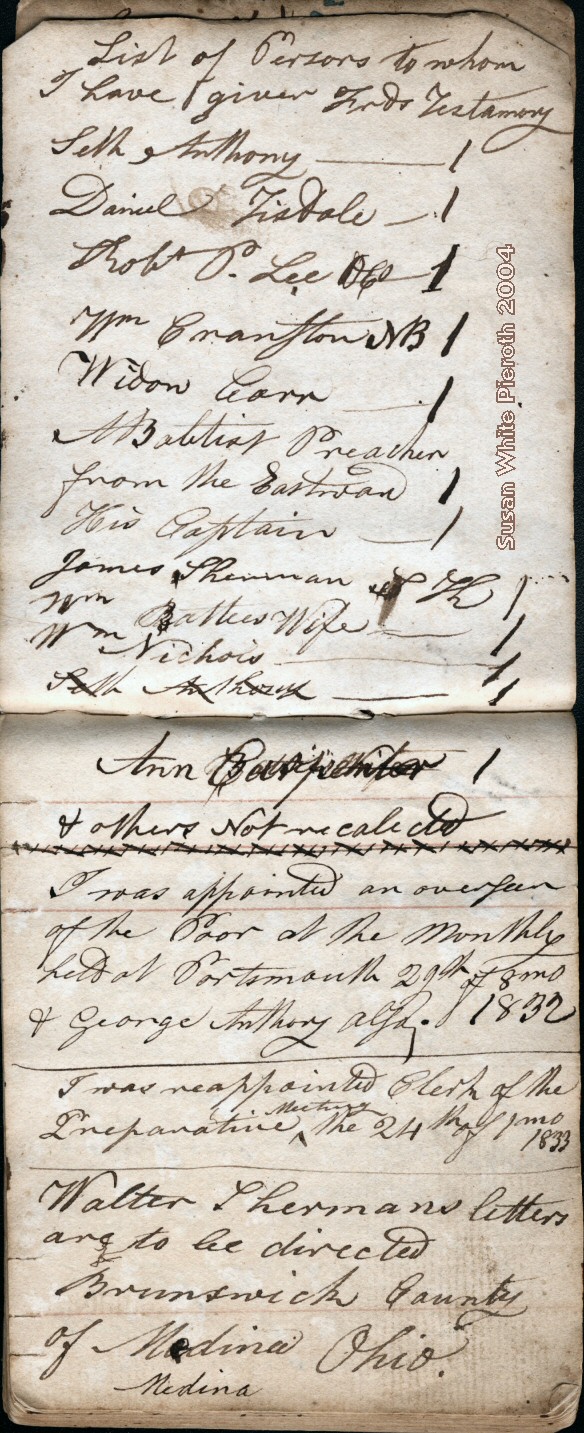 List of Persons to whom
I have given Frds Testamony
Seth Anthony — 1
Daniel Tisdale — 1
Robt P. Lee — 1
Wm Cranston NB 1
Widow Carr — 1
A Babtist Preacher
from the Eastward 1
His Captain — 1
James Sherman 1
Wm Battees Wife — 1
Wm Nichols — 1
Seth Anthony — 1
Ann 1
& others Not recalected
I was appointed an overseer
of the Poor at the Monthly
held at Portsmouth 29th of 8 mo
& George Anthony also. 1832
I was reappointed Clerk of the
Preparative Meeting the 24th of 1 mo
1833
Walter Shermans letters
are to be directed
Brunswick County
of Medina Ohio.
Medina
Susan White Pieroth 2004